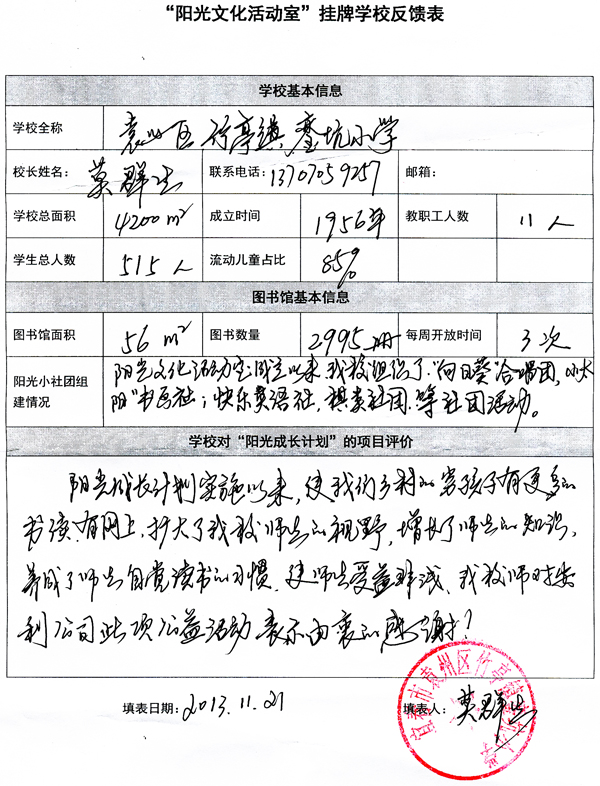 “阳光文化活动室”挂牌学校反馈表
学校基本信息
学校全称 袁州区竹亭镇 坑小学
校长姓名: 莫群生 联系电话: 13707059257 邮箱:
学校总面积 4200m² 成立时间 1956年 教职工人数 11人
学生总人数 515人 流动儿童占比 85%
图书馆基本信息
图书馆面积 56m² 图书数量 2995册 每周开放时间 3次
阳光小社团组建情况
阳光文化活动室成立以来我校组织了“向日葵”合唱团,“小太
阳”书画社;快乐英语社,棋类社团.等社团活动。
学校对“阳光成长计划”的项目评价
阳光成长计划实施以来,使我们乡村的穷孩子有更多的
书读、有网上,扩大了我校师生的视野,增长了师生的知识,
养成了师生自觉读书的习惯.使师生受益非浅.我校师 对安
利公司此项公益活动表示由衷的感谢!
填表日期: 2013.11.21 填表人: 莫群生
宜春市袁州区竹亭镇 坑小学